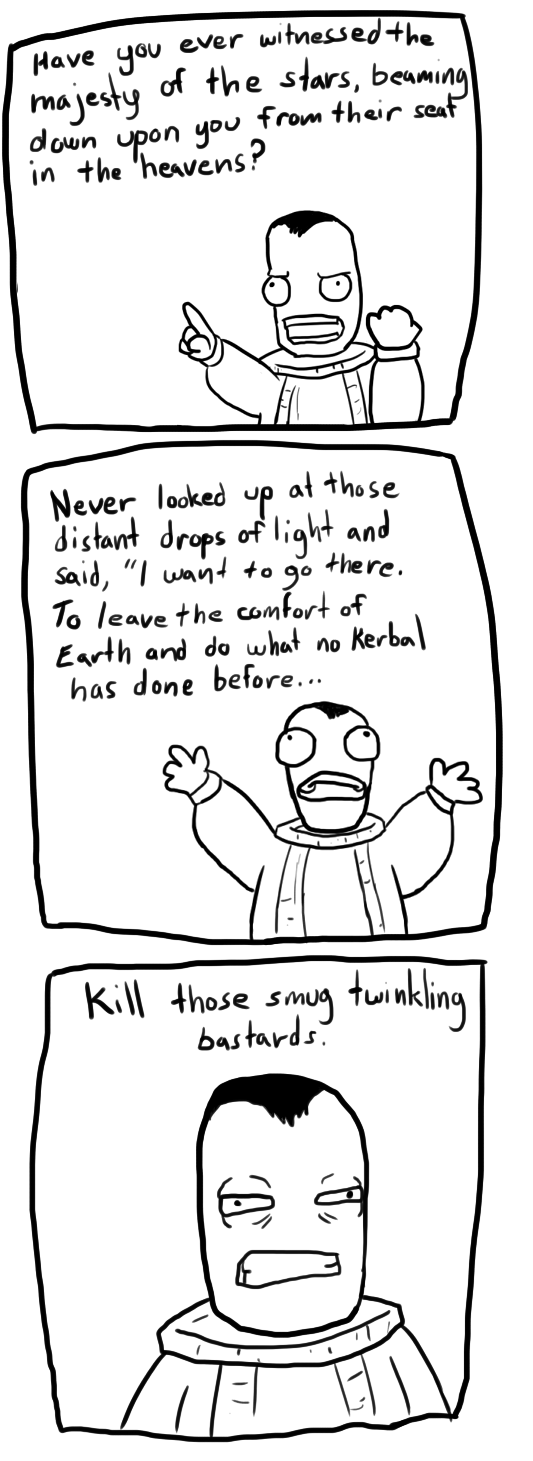 Have you ever witnessed the
majesty of the stars, beaming
down upon you from their seat
in the heavens?
Never looked up at those
distant drops of light and
said, "I want to go there.
To leave the comfort of
Earth and do what no Kerbal
has done before...
Kill those smug twinkling
bastards.